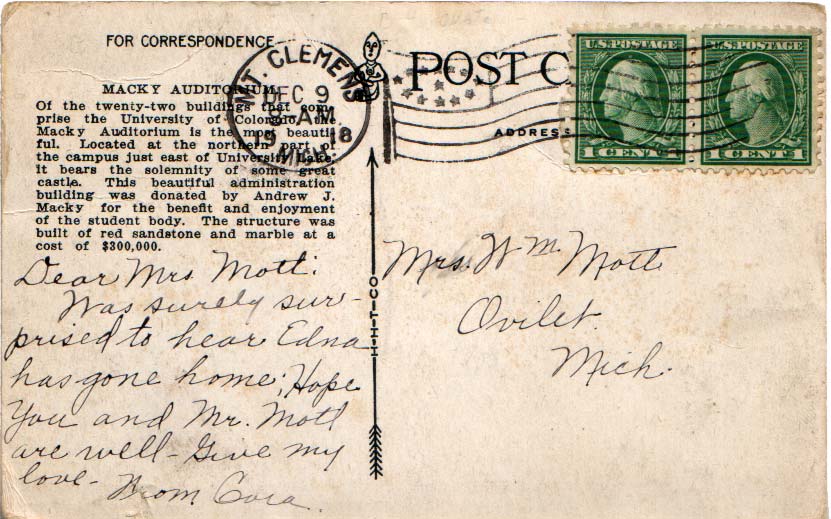 FOR CORRESPONDENCE
MACKY AUDITORIUM.
Of the twenty-two buildings that com-
prise the University of Colorado, the
Macky Auditorium is the most beauti-
ful. Located at the northern part of
the campus just east of University Lake,
it bears the solemnity of some great
castle. This beautiful administration
building was donated by Andrew J.
Macky for the benefit and enjoyment
of the student body. The structure was
built of red sandstone and marble at a
cost of $300,000.
MT. CLEMENS
DEC 9
8 AM
1918
MICH.
POST C
ADDRESS
U.S. POSTAGE
1 CENT 1
U.S. POSTAGE
1 CENT 1
H-H-T-CO
Dear Mrs Mott:
Was surely sur-
prised to hear Edna
has gone home; Hope
You and Mr. Mott
are well - Give my
love - From Cora.
Mrs. Wm Mott
Ovilet.
Mich.